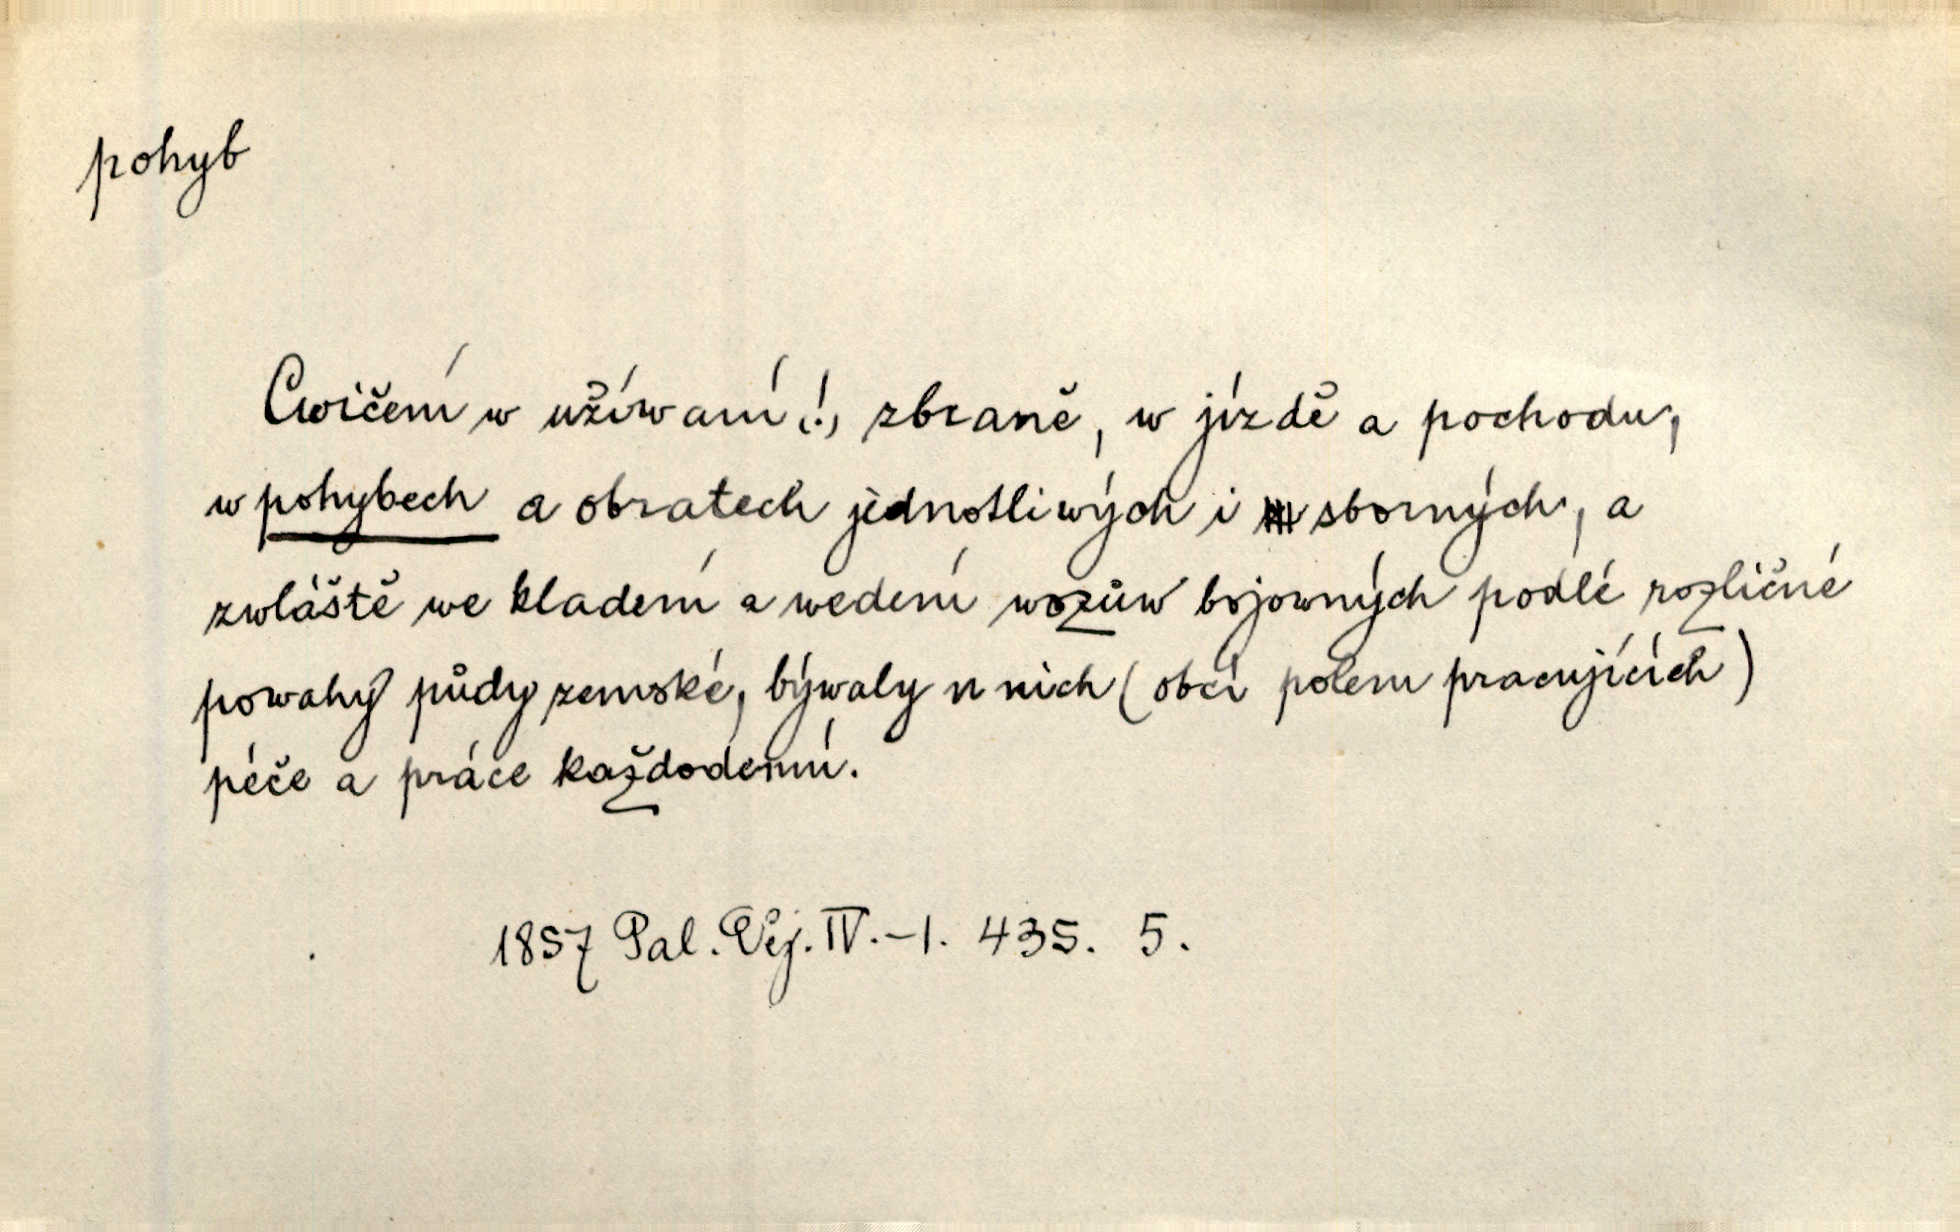 pohyb
Cwičení w užíwaní (!) zbraně, w jízdě a pochodu,
w pohybech a obratech jednotliwých i sborných, a
zwláště we kladení a wedení wozůw bojowných podlé rozličné
powahy půdy zemské, býwaly u nich (obcí polem pracujících)
péče a práce každodenní.
1857 Pal. Děj. IV.-1. 435. 5.